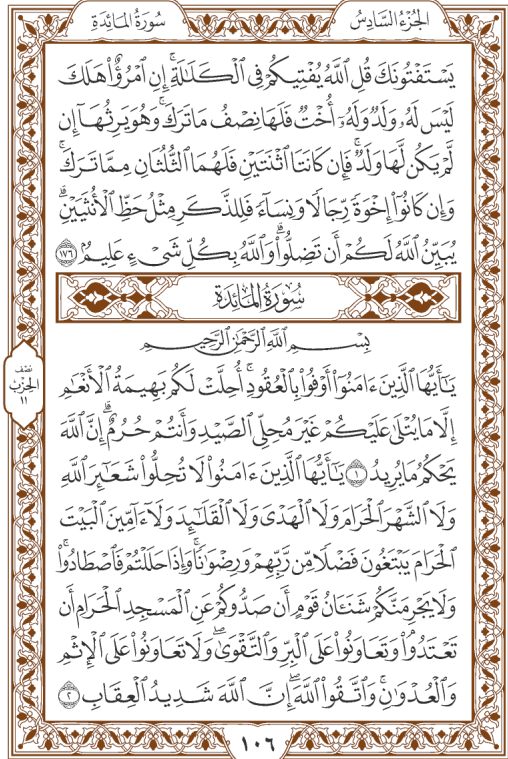 الجُزْءُ السَّادِسُ
سُورَةُ المَائِدَةِ
يَسْتَفْتُونَكَ قُلِ ٱللَّهُ يُفْتِيكُمْ فِي ٱلْكَلَٰلَةِۚ إِنِ ٱمْرُؤٌا۟ هَلَكَ
لَيْسَ لَهُۥ وَلَدٌ وَلَهُۥٓ أُخْتٌ فَلَهَا نِصْفُ مَا تَرَكَۚ وَهُوَ يَرِثُهَآ إِن
لَّمْ يَكُن لَّهَا وَلَدٌۚ فَإِن كَانَتَا ٱثْنَتَيْنِ فَلَهُمَا ٱلثُّلُثَانِ مِمَّا تَرَكَۚ
وَإِن كَانُوٓا۟ إِخْوَةً رِّجَالًا وَنِسَآءً فَلِلذَّكَرِ مِثْلُ حَظِّ ٱلْأُنثَيَيْنِۗ
يُبَيِّنُ ٱللَّهُ لَكُمْ أَن تَضِلُّوا۟ۗ وَٱللَّهُ بِكُلِّ شَىْءٍ عَلِيمٌۢ ١٧٦
سُورَةُ المَائِدَةِ
بِسْمِ ٱللَّهِ ٱلرَّحْمَٰنِ ٱلرَّحِيمِ
يَٰٓأَيُّهَا ٱلَّذِينَ ءَامَنُوٓا۟ أَوْفُوا۟ بِٱلْعُقُودِۚ أُحِلَّتْ لَكُم بَهِيمَةُ ٱلْأَنْعَٰمِ
إِلَّا مَا يُتْلَىٰ عَلَيْكُمْ غَيْرَ مُحِلِّى ٱلصَّيْدِ وَأَنتُمْ حُرُمٌۗ إِنَّ ٱللَّهَ
يَحْكُمُ مَا يُرِيدُ ١ يَٰٓأَيُّهَا ٱلَّذِينَ ءَامَنُوا۟ لَا تُحِلُّوا۟ شَعَٰٓئِرَ ٱللَّهِ
وَلَا ٱلشَّهْرَ ٱلْحَرَامَ وَلَا ٱلْهَدْىَ وَلَا ٱلْقَلَٰٓئِدَ وَلَآ ءَآمِّينَ ٱلْبَيْتَ
ٱلْحَرَامَ يَبْتَغُونَ فَضْلًا مِّن رَّبِّهِمْ وَرِضْوَٰنًاۚ وَإِذَا حَلَلْتُمْ فَٱصْطَادُوا۟ۚ
وَلَا يَجْرِمَنَّكُمْ شَنَـَٔانُ قَوْمٍ أَن صَدُّوكُمْ عَنِ ٱلْمَسْجِدِ ٱلْحَرَامِ أَن
تَعْتَدُوا۟ۘ وَتَعَاوَنُوا۟ عَلَى ٱلْبِرِّ وَٱلتَّقْوَىٰۖ وَلَا تَعَاوَنُوا۟ عَلَى ٱلْإِثْمِ
وَٱلْعُدْوَٰنِۚ وَٱتَّقُوا۟ ٱللَّهَۖ إِنَّ ٱللَّهَ شَدِيدُ ٱلْعِقَابِ ٢
نصف
الحِزْب
١١
١٠٦